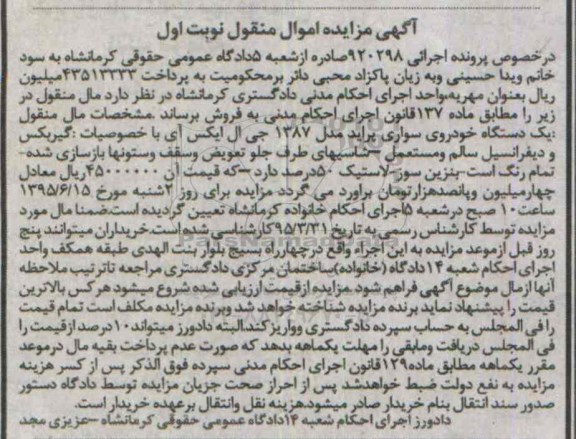 آگهی مزایده اموال منقول نوبت اول
درخصوص پرونده اجرائی ۹۲۰۲۹۸صادره ازشعبه ۵دادگاه عمومی حقوقی کرمانشاه به سود
خانم ویدا حسینی وبه زیان پاکزاد محبی دائر برمحکومیت به پرداخت ۴۳۵۱۳۳۳۳میلیون
ریال بعنوان مهریه،واحد اجرای احکام مدنی دادگستری کرمانشاه در نظر دارد مال منقول در
زیر را مطابق ماده ۱۳۷قانون اجرای احکام مدنی به فروش برساند .مشخصات مال منقول
:یک دستگاه خودروی سواری پراید مدل ۱۳۸۷ جی ال ایکس آی با خصوصیات :گیربکس
و دیفرانسیل سالم ومستعمل –شاسیهای طرف جلو تعویض وسقف وستونها بازسازی شده-
تمام رنگ است-بنزین سوز-لاستیک ۵۰درصد دارد –که قیمت آن ۴۵۰۰۰۰۰۰ریال معادل
چهارمیلیون وپانصدهزارتومان براورد می گردد مزایده برای روز ۲شنبه مورخ ۱۳۹۵/۶/۱۵
ساعت۱۰ صبح درشعبه ۵اجرای احکام خانواده کرمانشاه تعیین گردیده است.ضمنا مال مورد
مزایده توسط کارشناس رسمی به تاریخ ۹۵/۳/۳۱کارشناسی شده است.خریداران میتوانند پنج
روز قبل ازموعد مزایده به این اجراء واقع درچهارراه بسیج بلوار بنت الهدی طبقه همکف واحد
اجرای احکام شعبه ۱۴دادگاه (خانواده)ساختمان مرکزی دادگستری مراجعه تاترتیب ملاحظه
آنها ازمال موضوع آگهی فراهم شود .مزایده ازقیمت ارزیابی شده شروع میشود هرکس بالاترین
قیمت را پیشنهاد نماید برنده مزایده شناخته خواهد شد وبرنده مزایده مکلف است تمام قیمت
را فی المجلس به حساب سپرده دادگستری وواریزکند.البته دادورز میتواند۱۰درصد ازقیمت را
فی المجلس دریافت ومابقی را مهلت یکماهه بدهد که صورت عدم پرداخت بقیه مال درموعد
مقرر یکماهه مطابق ماده۱۲۹قانون اجرای احکام مدنی سپرده فوق الذکر پس از کسر هزینه
مزایده به نفع دولت ضبط خواهدشد پس از احراز صحت جزیان مزایده توسط دادگاه دستور
صدور سند انتقال بنام خریدار صادر میشود.هزینه نقل وانتقال برعهده خریدار است.
دادورز اجرای احکام شعبه ۱۴دادگاه عمومی حقوقی کرمانشاه –عزیزی مجد